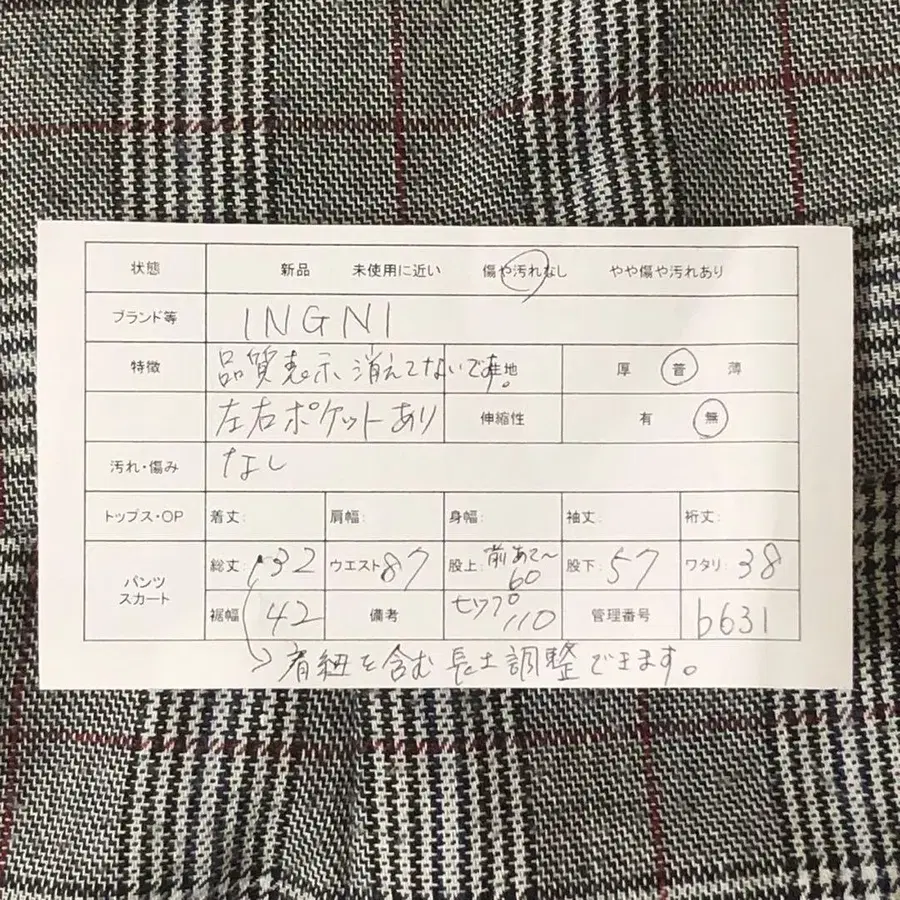 状態 新品 未使用に近い 傷や汚れなし やや傷や汚れあり
ブランド等 INGNI
特徴 品質表示 消えてないです。 生地 厚 普 薄
左右ポケットあり 伸縮性 有 無
汚れ・傷み なし
トップス・OP 着丈: 肩幅: 身幅: 袖丈: 裄丈:
パンツ スカート 総丈: 132 ウエスト 87 股上: 前あて〜60 股下: 57 ワタリ: 38
裾幅 42 備考 ヒップ110 管理番号 b631
→肩紐を含む 長さ調整できます。